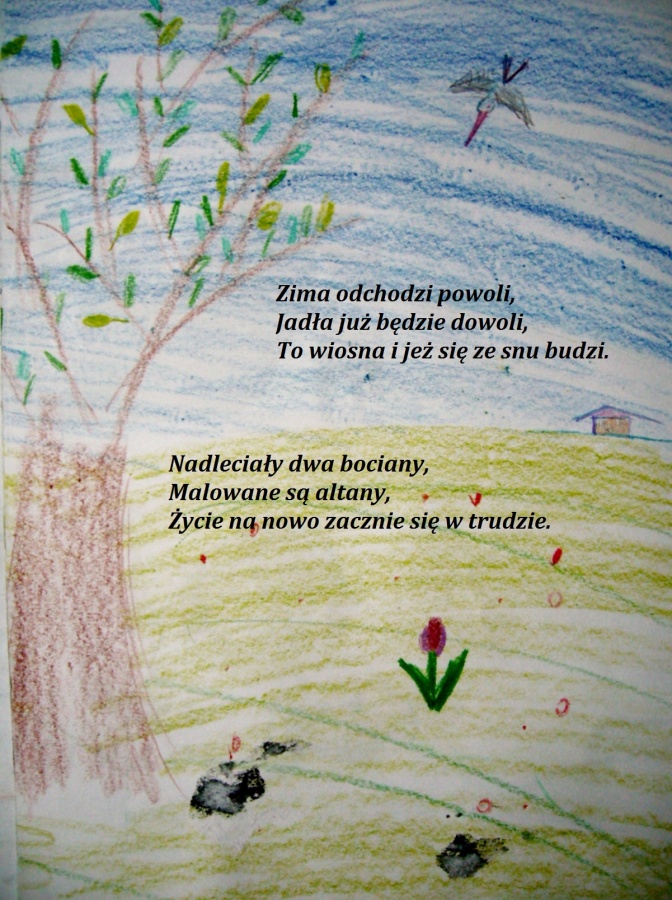 Zima odchodzi powoli,
Jadła już będzie dowoli,
To wiosna i jeż się ze snu budzi.
Nadleciały dwa bociany,
Malowane są altany,
Życie na nowo zacznie się w trudzie.